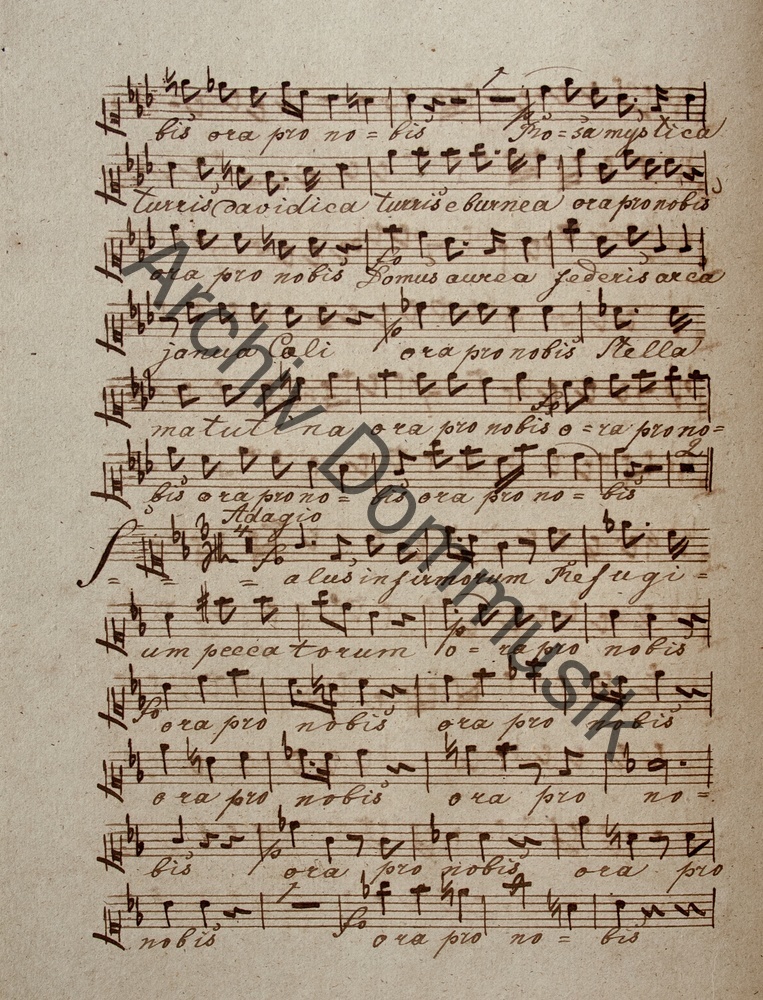 bis ora pro no = bis Ro = sa mystica
turris Davidica turris eburnea ora pro nobis
ora pro nobis Domus aurea federis arca
janua Cœli ora pro nobis Stella
matutina ora pro nobis o = ra pro no =
bis ora pro no = bis ora pro no = bis
2
Adagio
S = = = alus infirmorum Refugi =
um peccatorum o = ra pro nobis
fo ora pro nobis ora pro nobis
ora pro nobis ora pro no =
bis p ora pro nobis ora pro
nobis fo ora pro no = bis
Archiv Dommusik